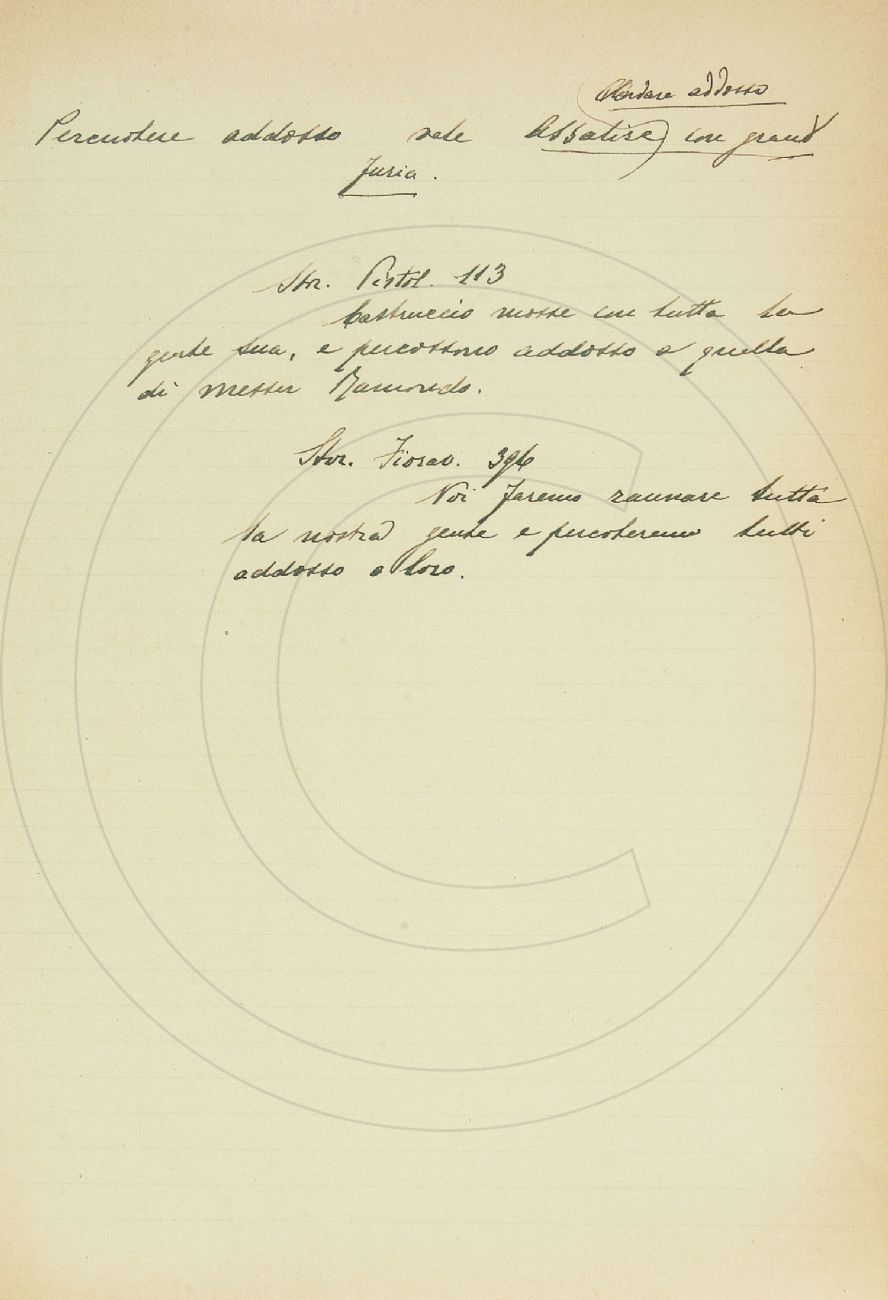 Andare addosso
Percuotere addosso vale Assalire) con grand
furia.
Stor. Pistol. 113
Castruccio mosse con tutta la
gente sua, e percossono addosso a quella
di messer Ramondo.
Stor. Fiorav. 396
Noi faremo raunare tutta
la nostra gente e percoteremo tutti
addosso a loro.